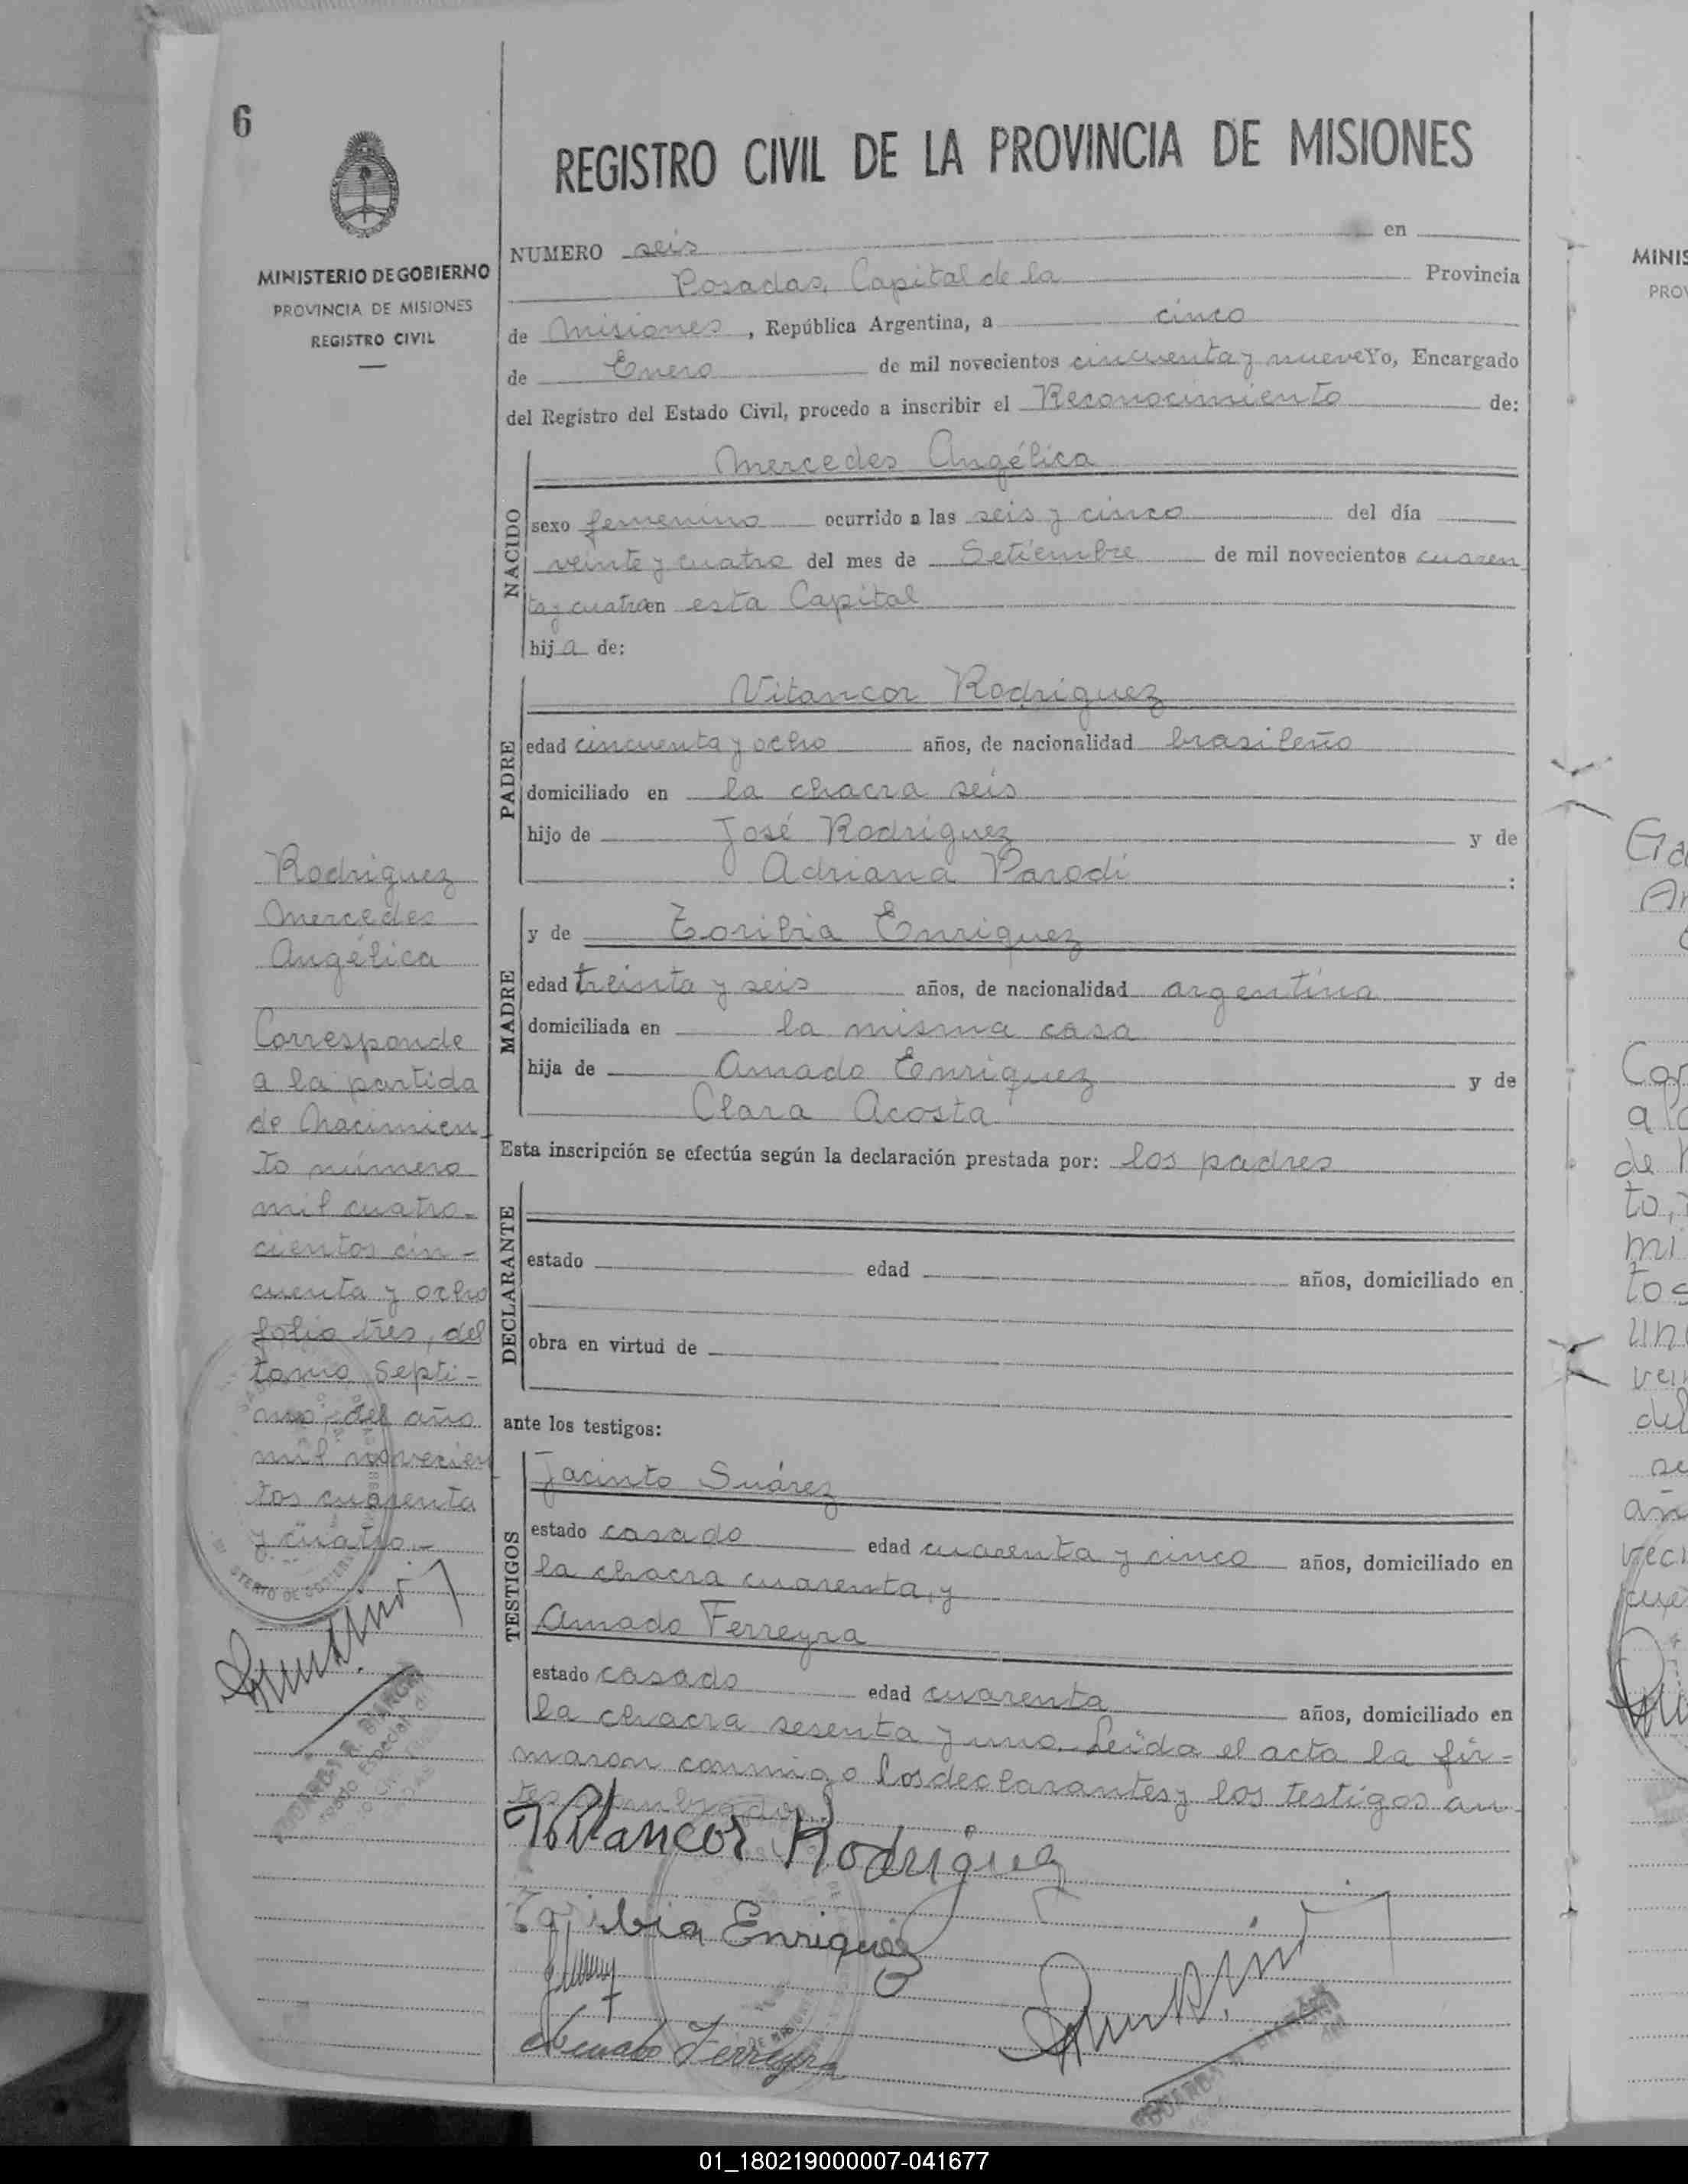 6
REGISTRO CIVIL DE LA PROVINCIA DE MISIONES
MINISTERIO DE GOBIERNO
PROVINCIA DE MISIONES
REGISTRO CIVIL
NUMERO seis en
Posadas, Capital de la Provincia
de Misiones, República Argentina, a cinco
de Enero de mil novecientos cincuenta y nueve Yo, Encargado
del Registro del Estado Civil, procedo a inscribir el Reconocimiento de:
NACIDO
Mercedes Angélica
sexo femenino ocurrido a las seis y cinco del día
veinte y cuatro del mes de Setiembre de mil novecientos cuaren
ta y cuatro en esta Capital
hija de:
PADRE
Vitancor Rodriguez
edad cincuenta y ocho años, de nacionalidad brasileño
domiciliado en la chacra seis
hijo de José Rodriguez y de
Adriana Parodi :
MADRE
y de Toribia Enriquez
edad treinta y seis años, de nacionalidad argentina
domiciliada en la misma casa
hija de Amado Enriquez y de
Clara Acosta
Esta inscripción se efectúa según la declaración prestada por: los padres
DECLARANTE
estado edad años, domiciliado en
obra en virtud de
ante los testigos:
TESTIGOS
Jacinto Suárez
estado casado edad cuarenta y cinco años, domiciliado en
la chacra cuarenta, y
Amado Ferreyra
estado casado edad cuarenta años, domiciliado en
la chacra sesenta y uno. Leída el acta la fir=
maron conmigo los declarantes y los testigos an
tes nombrados.
Vitancor Rodriguez
Toribia Enriquez
Amado Ferreyra
Rodriguez
Mercedes
Angélica
Corresponde
a la partida
de Nacimien
to número
mil cuatro-
cientos cin-
cuenta y ocho
folio tres, del
tomo Septi-
mo, del año
mil novecien
tos cuarenta
y cuatro.-
MINIS
PRO
Co
a la
de N
to,
mi
tos
un
vei
del
01_180219000007-041677